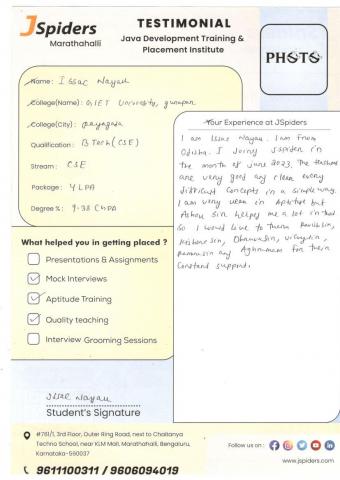 JSpiders
Marathahalli
TESTIMONIAL
Java Development Training &
Placement Institute
PHOTO
Name: Issac Nayak
College(Name): GIET University, gunupur
College(City): Rayagada
Qualification: B Tech (CSE)
Stream: CSE
Package: 4 LPA
Degree %: CGPA
What helped you in getting placed ?
Presentations & Assignments
Mock Interviews
Aptitude Training
Quality teaching
Interview Grooming Sessions
Your Experience at JSpiders
I am Issac Nayak. I am from
Odisha. I Joing Jspider in
the month of June 2023. The teachers
are very good any clear every
difficult concepts in a simple way.
I am very weak in Aptitude but
sir helped me a lot in that
So I would like to thank
sir,
sir any for their
Constant support.
Issac Nayak
Student's Signature
#761/1, 3rd Floor, Outer Ring Road, next to Chaitanya
Techno School, near KLM Mall, Marathahalli, Bengaluru,
Karnataka-560037
9611100311 / 9606094019
Follow us on :
www.jspiders.com